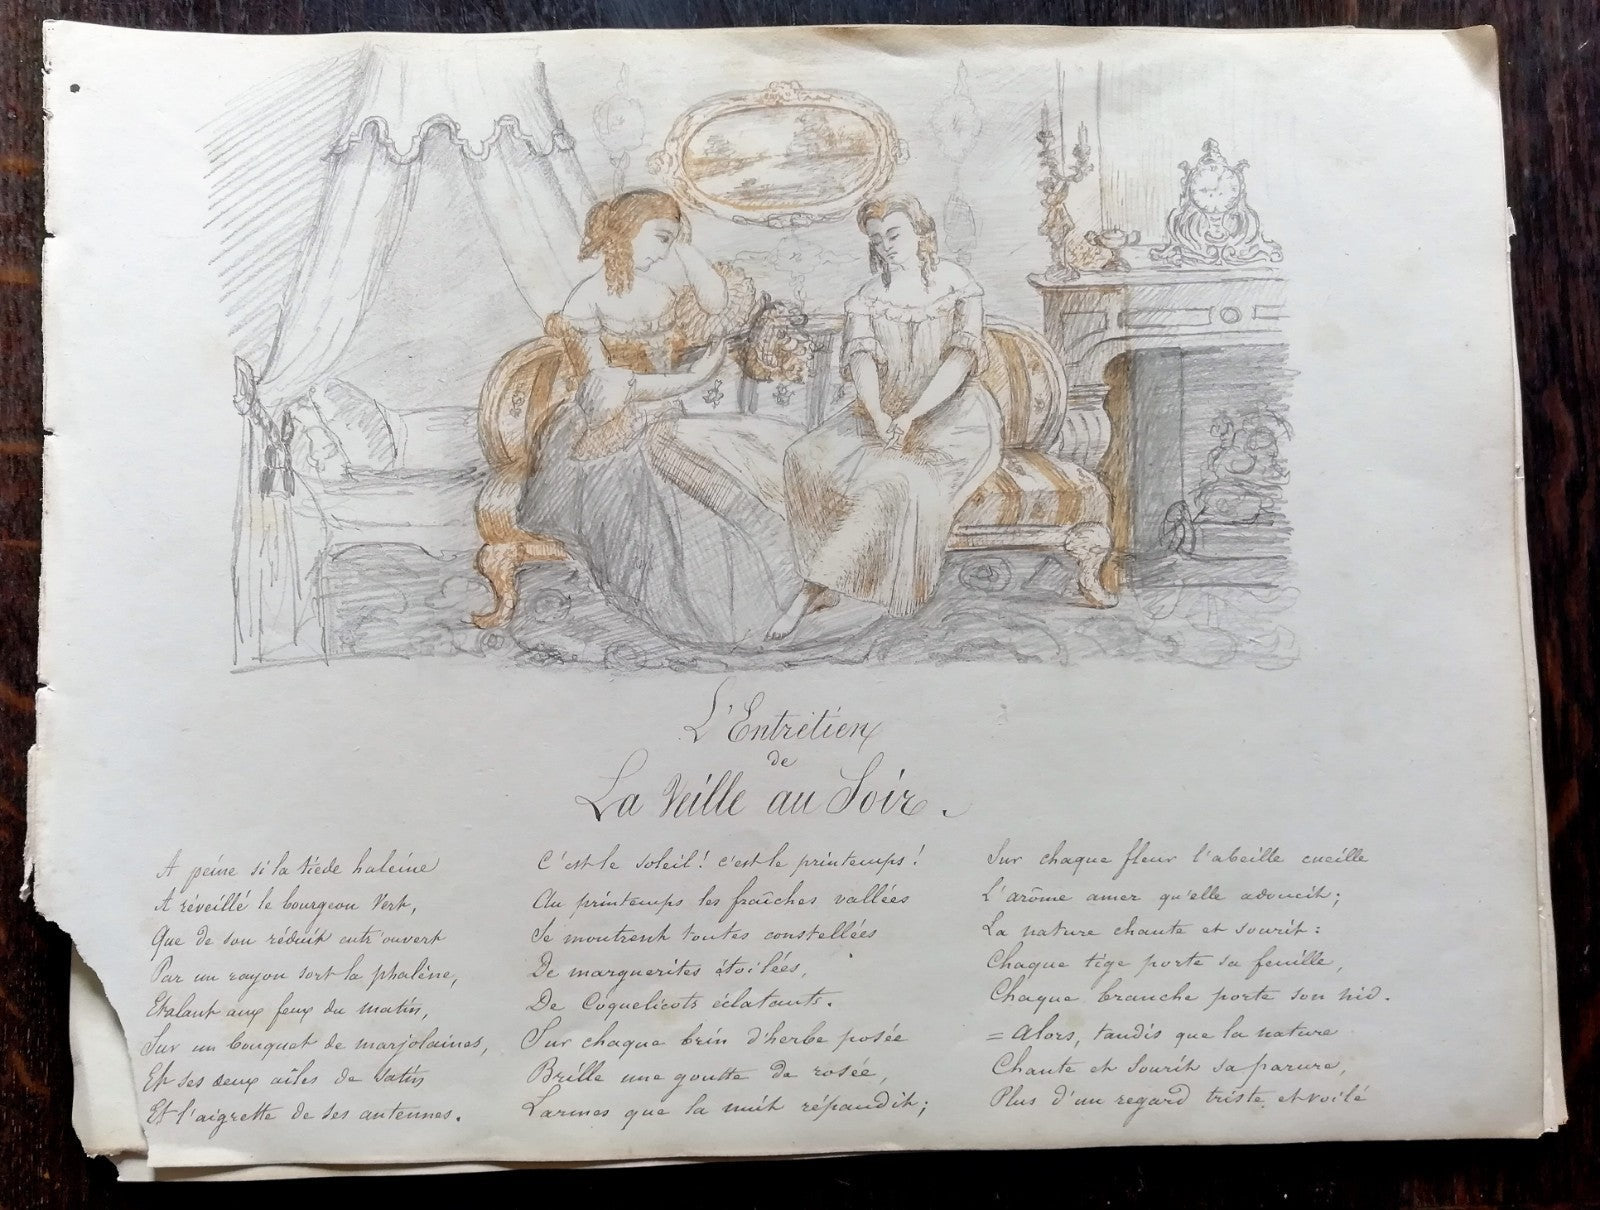 L'Entretien
de
La Veille au Soir.
A peine si la tiède haleine
A réveillé le bourgeon vert,
Que de son réduit entr'ouvert
Par un rayon sort la phalène,
Etalant aux feux du matin,
Sur un bouquet de marjolaines,
Et ses deux aîles de satin
Et l'aigrette de ses antennes.
C'est le soleil! c'est le printemps!
Au printemps les fraîches vallées
Se montrent toutes constellées
De marguerites étoilées,
De Coquelicots éclatants.
Sur chaque brin d'herbe posée
Brille une goutte de rosée,
Larmes que la nuit répandit;
Sur chaque fleur l'abeille cueille
L'arôme amer qu'elle adoucit;
La nature chante et sourit:
Chaque tige porte sa feuille,
Chaque branche porte son nid.
= Alors, tandis que la nature
Chante et sourit sa parure,
Plus d'un regard triste et voilé